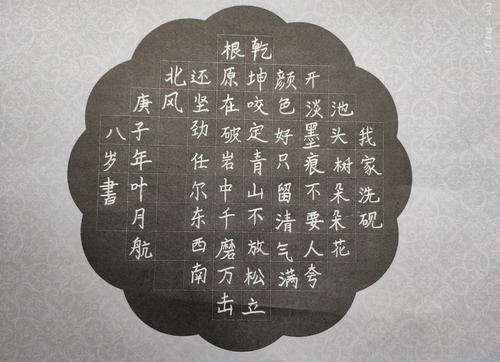 我家洗砚
池头树朵朵花
开淡墨痕不要人夸
颜色好只留清气满
乾坤咬定青山不放松立
根原在破岩中千磨万击
还坚劲任尔东西南
北风
庚子年叶月航
八岁書